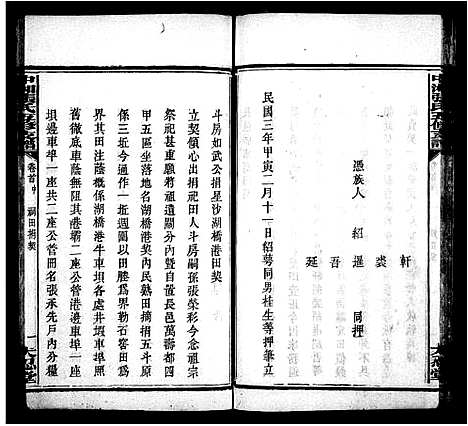 憑族人　紹暹　裁軒
吾延　同押
民國三年甲寅二月十一日紹蕚同男桂生等押筆立
斗房如武公捐星沙湖橋港田契
立契領心出捐祀田人斗房嗣孫張榮彩今念祖宗
祭祀甚重願將祖遺關分內暨自置長邑萬壽都四
甲五區坐落地名湖橋港契內民熟田摘捐五斗原
係三坵今通作一坵週圍以田塍為界勒石窖田為
界其田注蔭係湖橋港牛車垻各處井堰車埠照
舊徹底車蔭無阻其港霸二座公管港邊車埠一座
垻邊車埠一座共二座公管冊名張承先戶內分糧
卷首中　祠田捐契